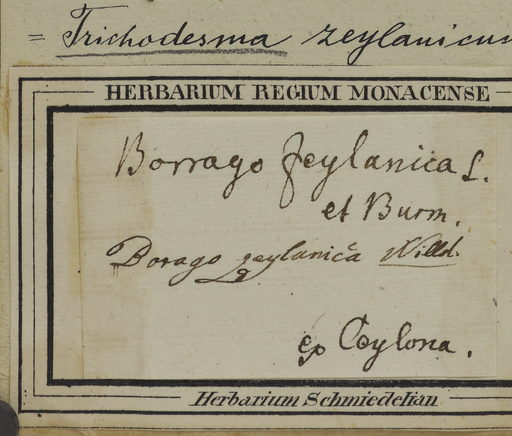 = Trichodesma zeylanicum
HERBARIUM REGIUM MONACENSE
Borrago zeylanica L.
et Burm.
Borago zeylanica Willd.
ex Ceylona.
Herbarium Schmiedelian